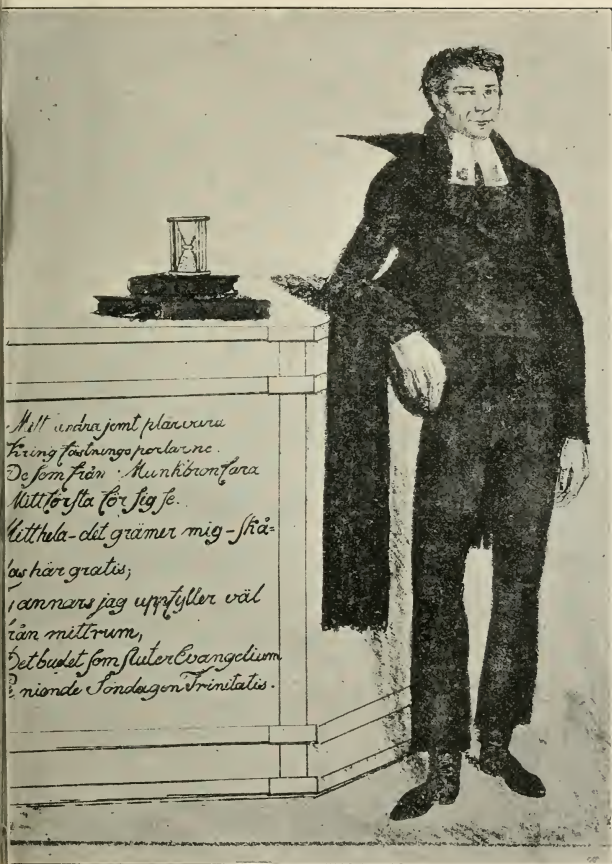 Mitt andra jemt plär vara
Kring fästningsportarne.
De som från Munkbron fara
Mitt första för sig se.
Mitt hela – det grämer mig – skå=
as här gratis;
annars jag uppfyller väl
rån mitt rum,
Det budet som sluter Evangelium
nionde Söndagen Trinitatis.